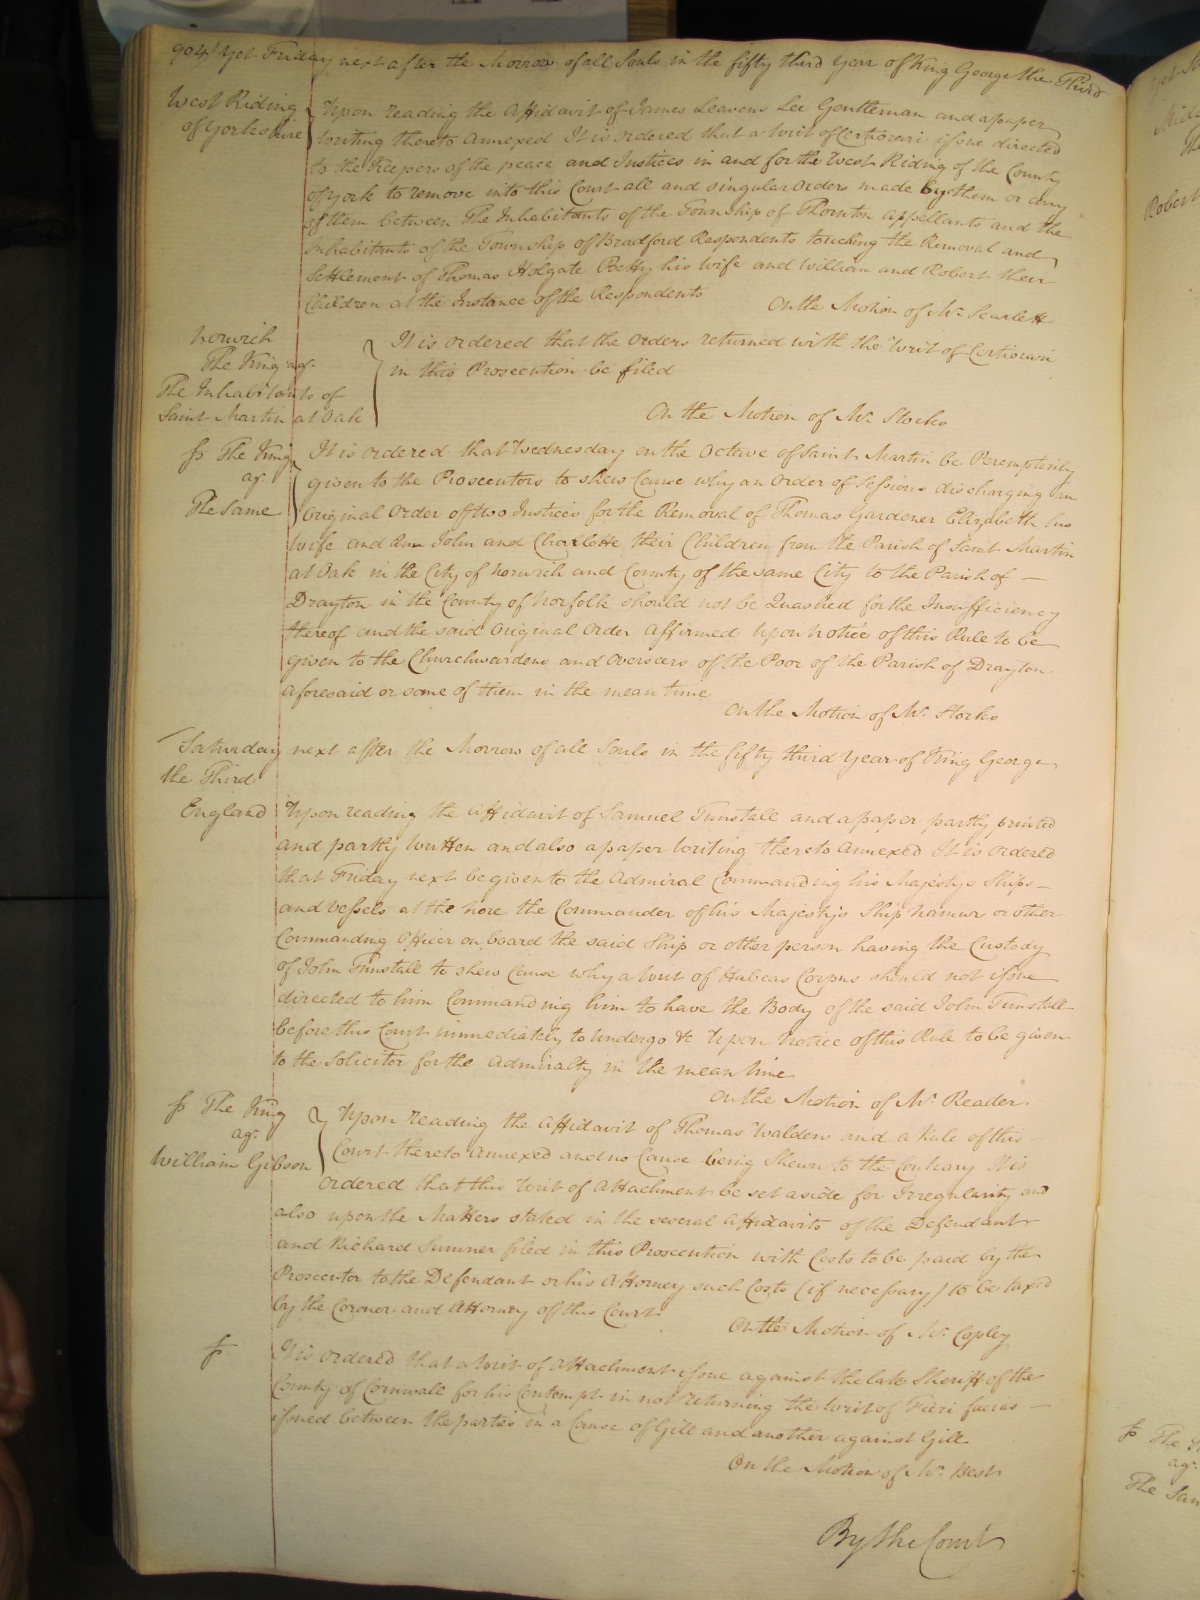 904 yet Friday next after the Morrow of all Souls in the fifty third year of King George the Third
West Riding of Yorkshire
Upon reading the Affidavit of James Leavens Lee Gentleman and a paper
Writing thereto Annexed It is ordered that a Writ of Certiorari issue directed
to the Keepers of the peace and Justices in and for the West Riding of the County
of York to remove into this Court all and singular Orders made by them or any
of them between The Inhabitants of the Township of Thornton Appellants and the
Inhabitants of the Township of Bradford Respondents touching the Removal and
Settlement of Thomas Holgate Betty his Wife and William and Robert their
Children at the Instance of the Respondents
On the Motion of Mr. Scarlett
Norwich
The King agt.
The Inhabitants of
Saint Martin at Oak
It is ordered that the Orders returned with the Writ of Certiorari
in this Prosecution be filed
On the Motion of Mr. Storks
The King
agt.
The Same
It is ordered that Wednesday on the Octave of Saint Martin be Peremptorily
given to the Prosecutors to shew Cause why an Order of Sessions discharging an
Original Order of two Justices for the Removal of Thomas Gardener Elizabeth his
Wife and Ann John and Charlotte their Children from the Parish of Saint Martin
at Oak in the City of Norwich and County of the same City to the Parish of —
Drayton in the County of Norfolk should not be Quashed for the Insufficiency
thereof and the said Original Order Affirmed Upon Notice of this Rule to be
given to the Churchwardens and Overseers of the Poor of the Parish of Drayton
aforesaid or some of them in the mean time
On the Motion of Mr. Storks
Saturday next after the Morrow of all Souls in the fifty third Year of King George
the Third
England
Upon reading the Affidavit of Samuel Tunstall and a paper partly printed
and partly Written and also a paper Writing thereto Annexed It is Ordered
that Friday next be given to the Admiral Commanding his Majestys Ships —
and Vessels at the Nore the Commander of his Majestys Ship Namur or other
Commanding Officer on board the said Ship or other person having the Custody
of John Tunstall to shew Cause why a Writ of Habeas Corpus should not issue
directed to him Commanding him to have the Body of the said John Tunstall
before this Court immediately to undergo &c Upon Notice of this Rule to be given
to the Solicitor for the Admiralty in the mean time
On the Motion of Mr. Reader
The King
agt.
William Gibson
Upon reading the Affidavit of Thomas Walden and a Rule of this —
Court thereto Annexed and no Cause being Shewn to the Contrary It is
Ordered that this Writ of Attachment be set aside for Irregularity and
also upon the Matters stated in the several Affidavits of the Defendant
and Richard Sumner filed in this Prosecution with Costs to be paid by the
Prosecutor to the Defendant or his Attorney such Costs (if necessary) to be taxed
by the Coroner and Attorney of this Court
On the Motion of Mr. Copley
It is Ordered that a Writ of Attachment issue against the late Sheriff of the
County of Cornwall for his Contempt in not returning the Writ of Fieri facias —
issued between the parties in a Cause of Gill and another against Gill
On the Motion of Mr. Best
By the Court
Robert
The
agt.
The Sam